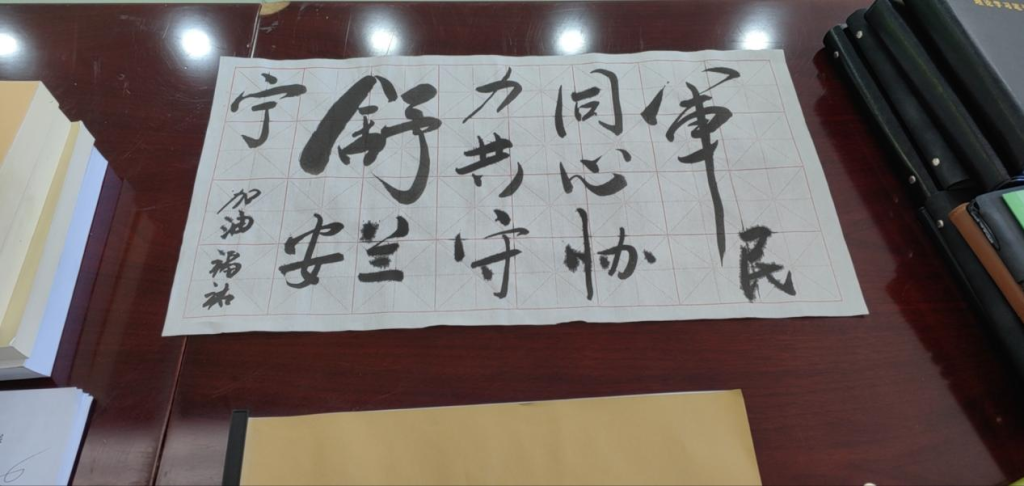 军民
同心协
力共守
舒兰
安
宁
加油福祐